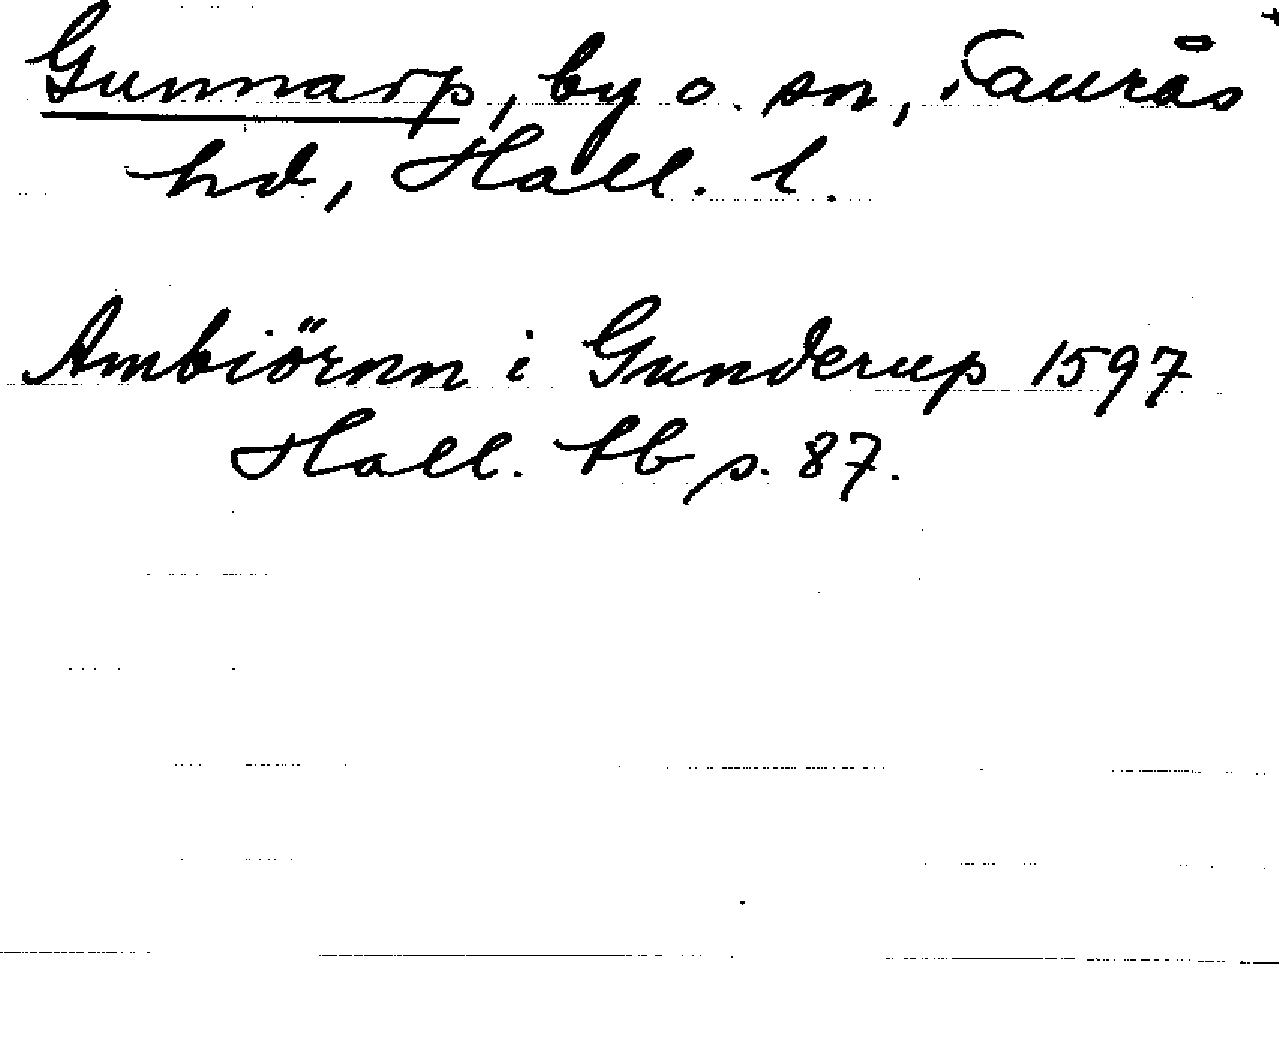 Gunnarp, by o. sn, Faurås
hd, Hall. l.
Ambiörnn i Gunderup 1597
Hall. tb s. 87.